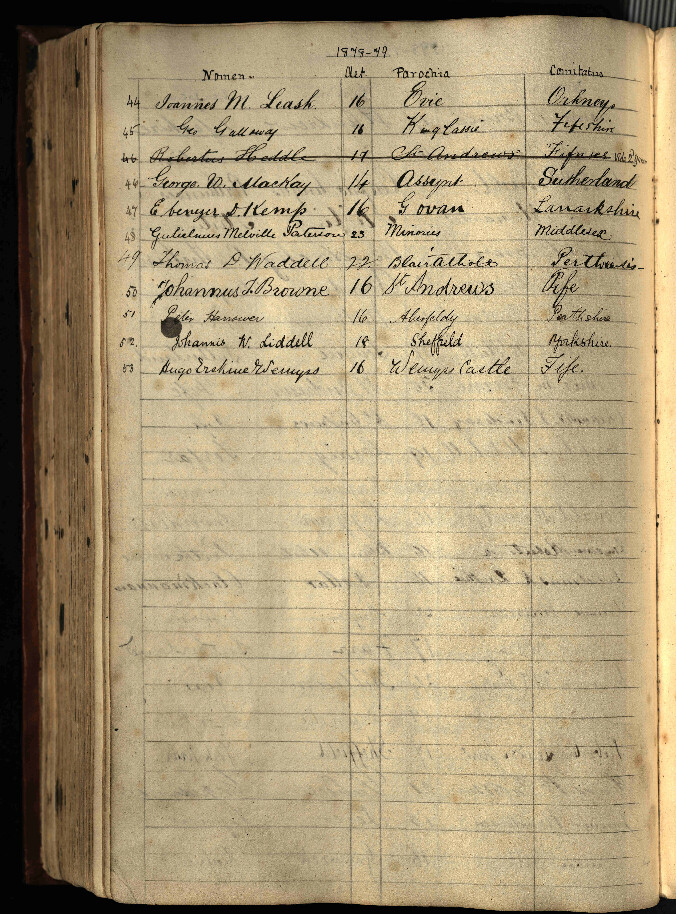 1878-79
Nomen. Aet. Parochia Comitatus
44 Ioannes M. Leash. 16 Evie Orkney
45 Geo Galloway 16 Kinglassie Fifeshire
46 Robertus Heddle 17 St. Andrews
46 George W. MacKay 14 Assynt Sutherland
47 Ebenezer D. Kemp 16 Govan Lanarkshire
48 Gulielmus Melville Paterson 23 Minories Middlesex.
49 Thomas D Waddell 22 Blair Athole
50 Johannus F. Browne 16 St Andrews Fife
51 Peter Harrower 16 Aberfeldy Perthshire
52. Johannis W. Liddell 18 Sheffield Yorkshire.
53 Hugo Erskine Wemyss 16 Wemyss Castle Fife.